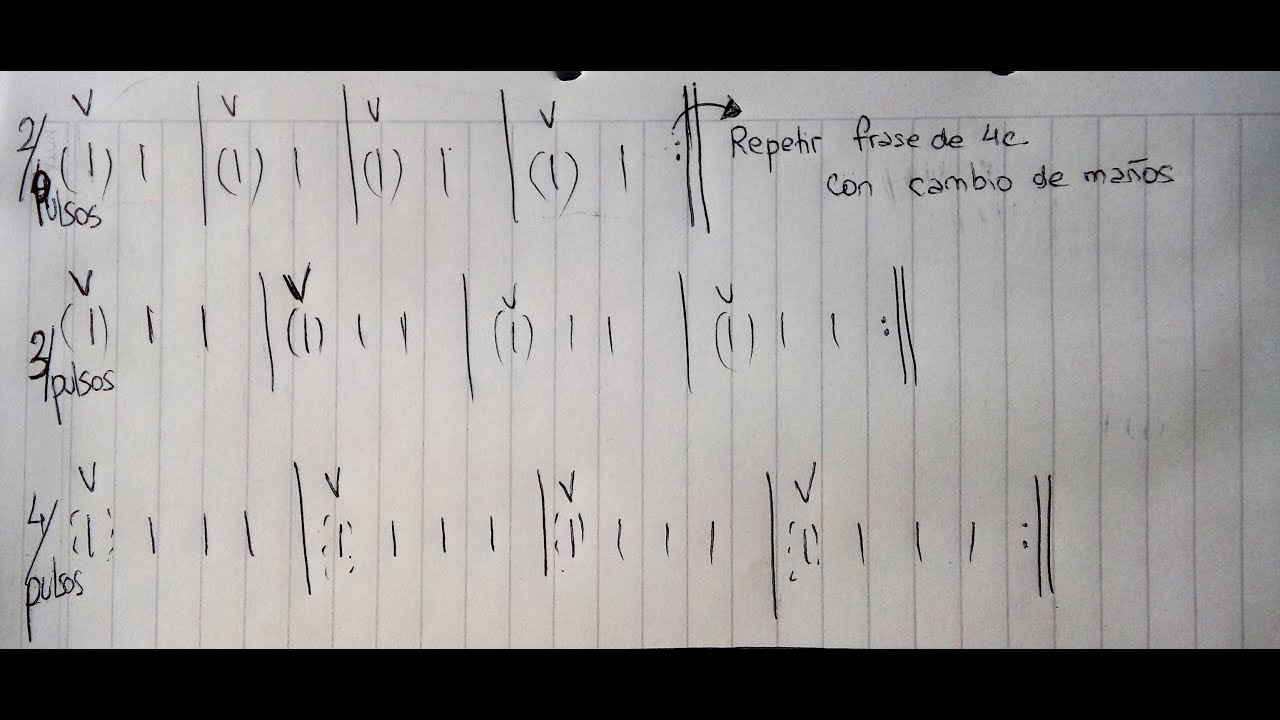 2/pulsos
Repetir frase de 4c
con cambio de maños
3/pulsos
4/pulsos